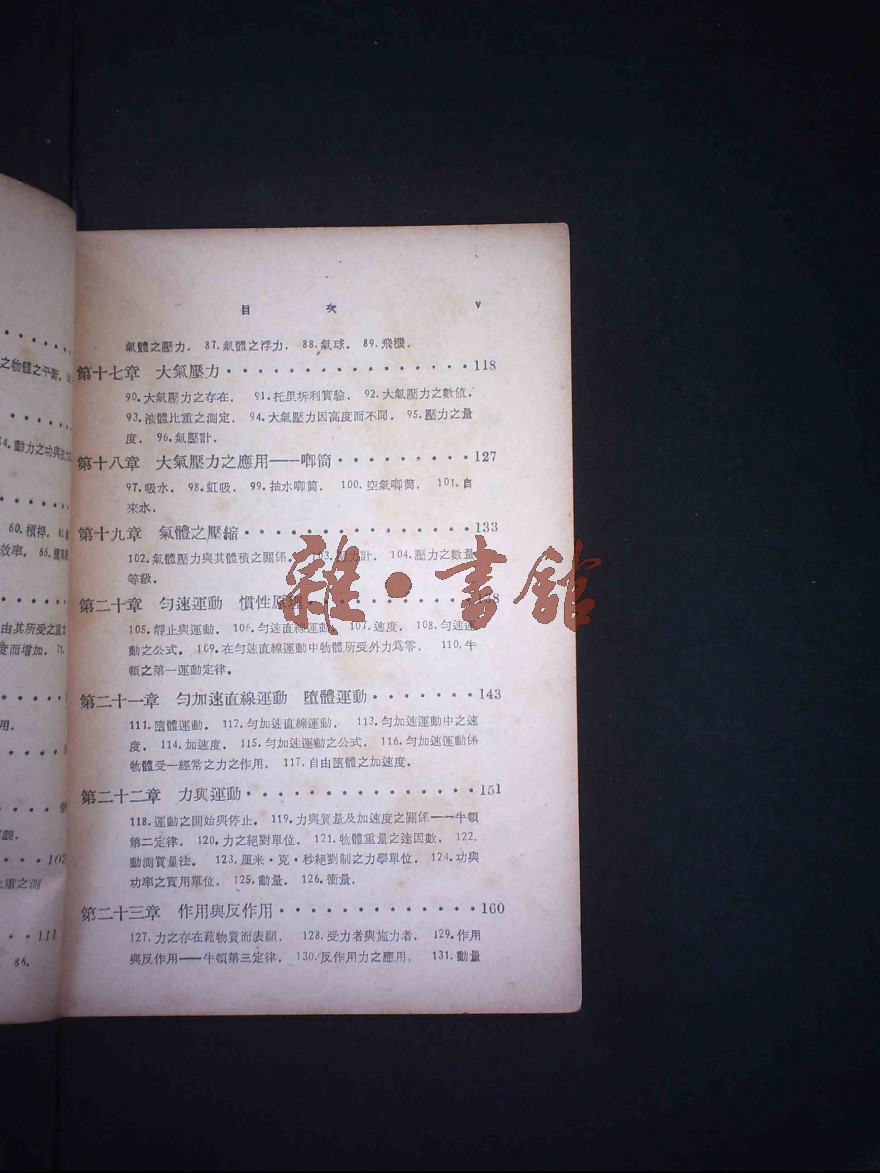 之物體之平衡.
54.動力之功與
60.槓桿.
效率. 66.
由其所受之重
度而增加. 71.
用.
觀.
103
重之測
111
86.
目 次 v
氣體之壓力. 87.氣體之浮力. 88.氣球. 89.飛機.
第十七章 大氣壓力··················118
90.大氣壓力之存在. 91.托里拆利實驗. 92.大氣壓力之數值.
93.液體比重之測定. 94.大氣壓力因高度而不同. 95.壓力之量
度. 96.氣壓計.
第十八章 大氣壓力之應用——唧筒·········127
97.吸水. 98.虹吸. 99.抽水唧筒. 100.空氣唧筒. 101.自
來水.
第十九章 氣體之壓縮················133
102.氣體壓力與其體積之關係. 103.壓力計. 104.壓力之數量
等級.
第二十章 勻速運動 慣性原理
105.靜止與運動. 106.勻速直線運動. 107.速度. 108.勻速運
動之公式. 109.在勻速直線運動中物體所受外力爲零. 110.牛
頓之第一運動定律.
第二十一章 勻加速直線運動 墮體運動·······143
111.墮體運動. 112.勻加速直線運動. 113.勻加速運動中之速
度. 114.加速度. 115.勻加速運動之公式. 116.勻加速運動係
物體受一經常之力之作用. 117.自由墮體之加速度.
第二十二章 力與運動················151
118.運動之開始與停止. 119.力與質量及加速度之關係——牛頓
第二定律. 120.力之絕對單位. 121.物體重量之達因數. 122.
動測質量法. 123.厘米·克·秒絕對制之力學單位. 124.功與
功率之實用單位. 125.動量. 126.衝量.
第二十三章 作用與反作用·············160
127.力之存在藉物質而表顯. 128.受力者與施力者. 129.作用
與反作用——牛頓第三定律. 130.反作用力之應用. 131.動量
雜·書館